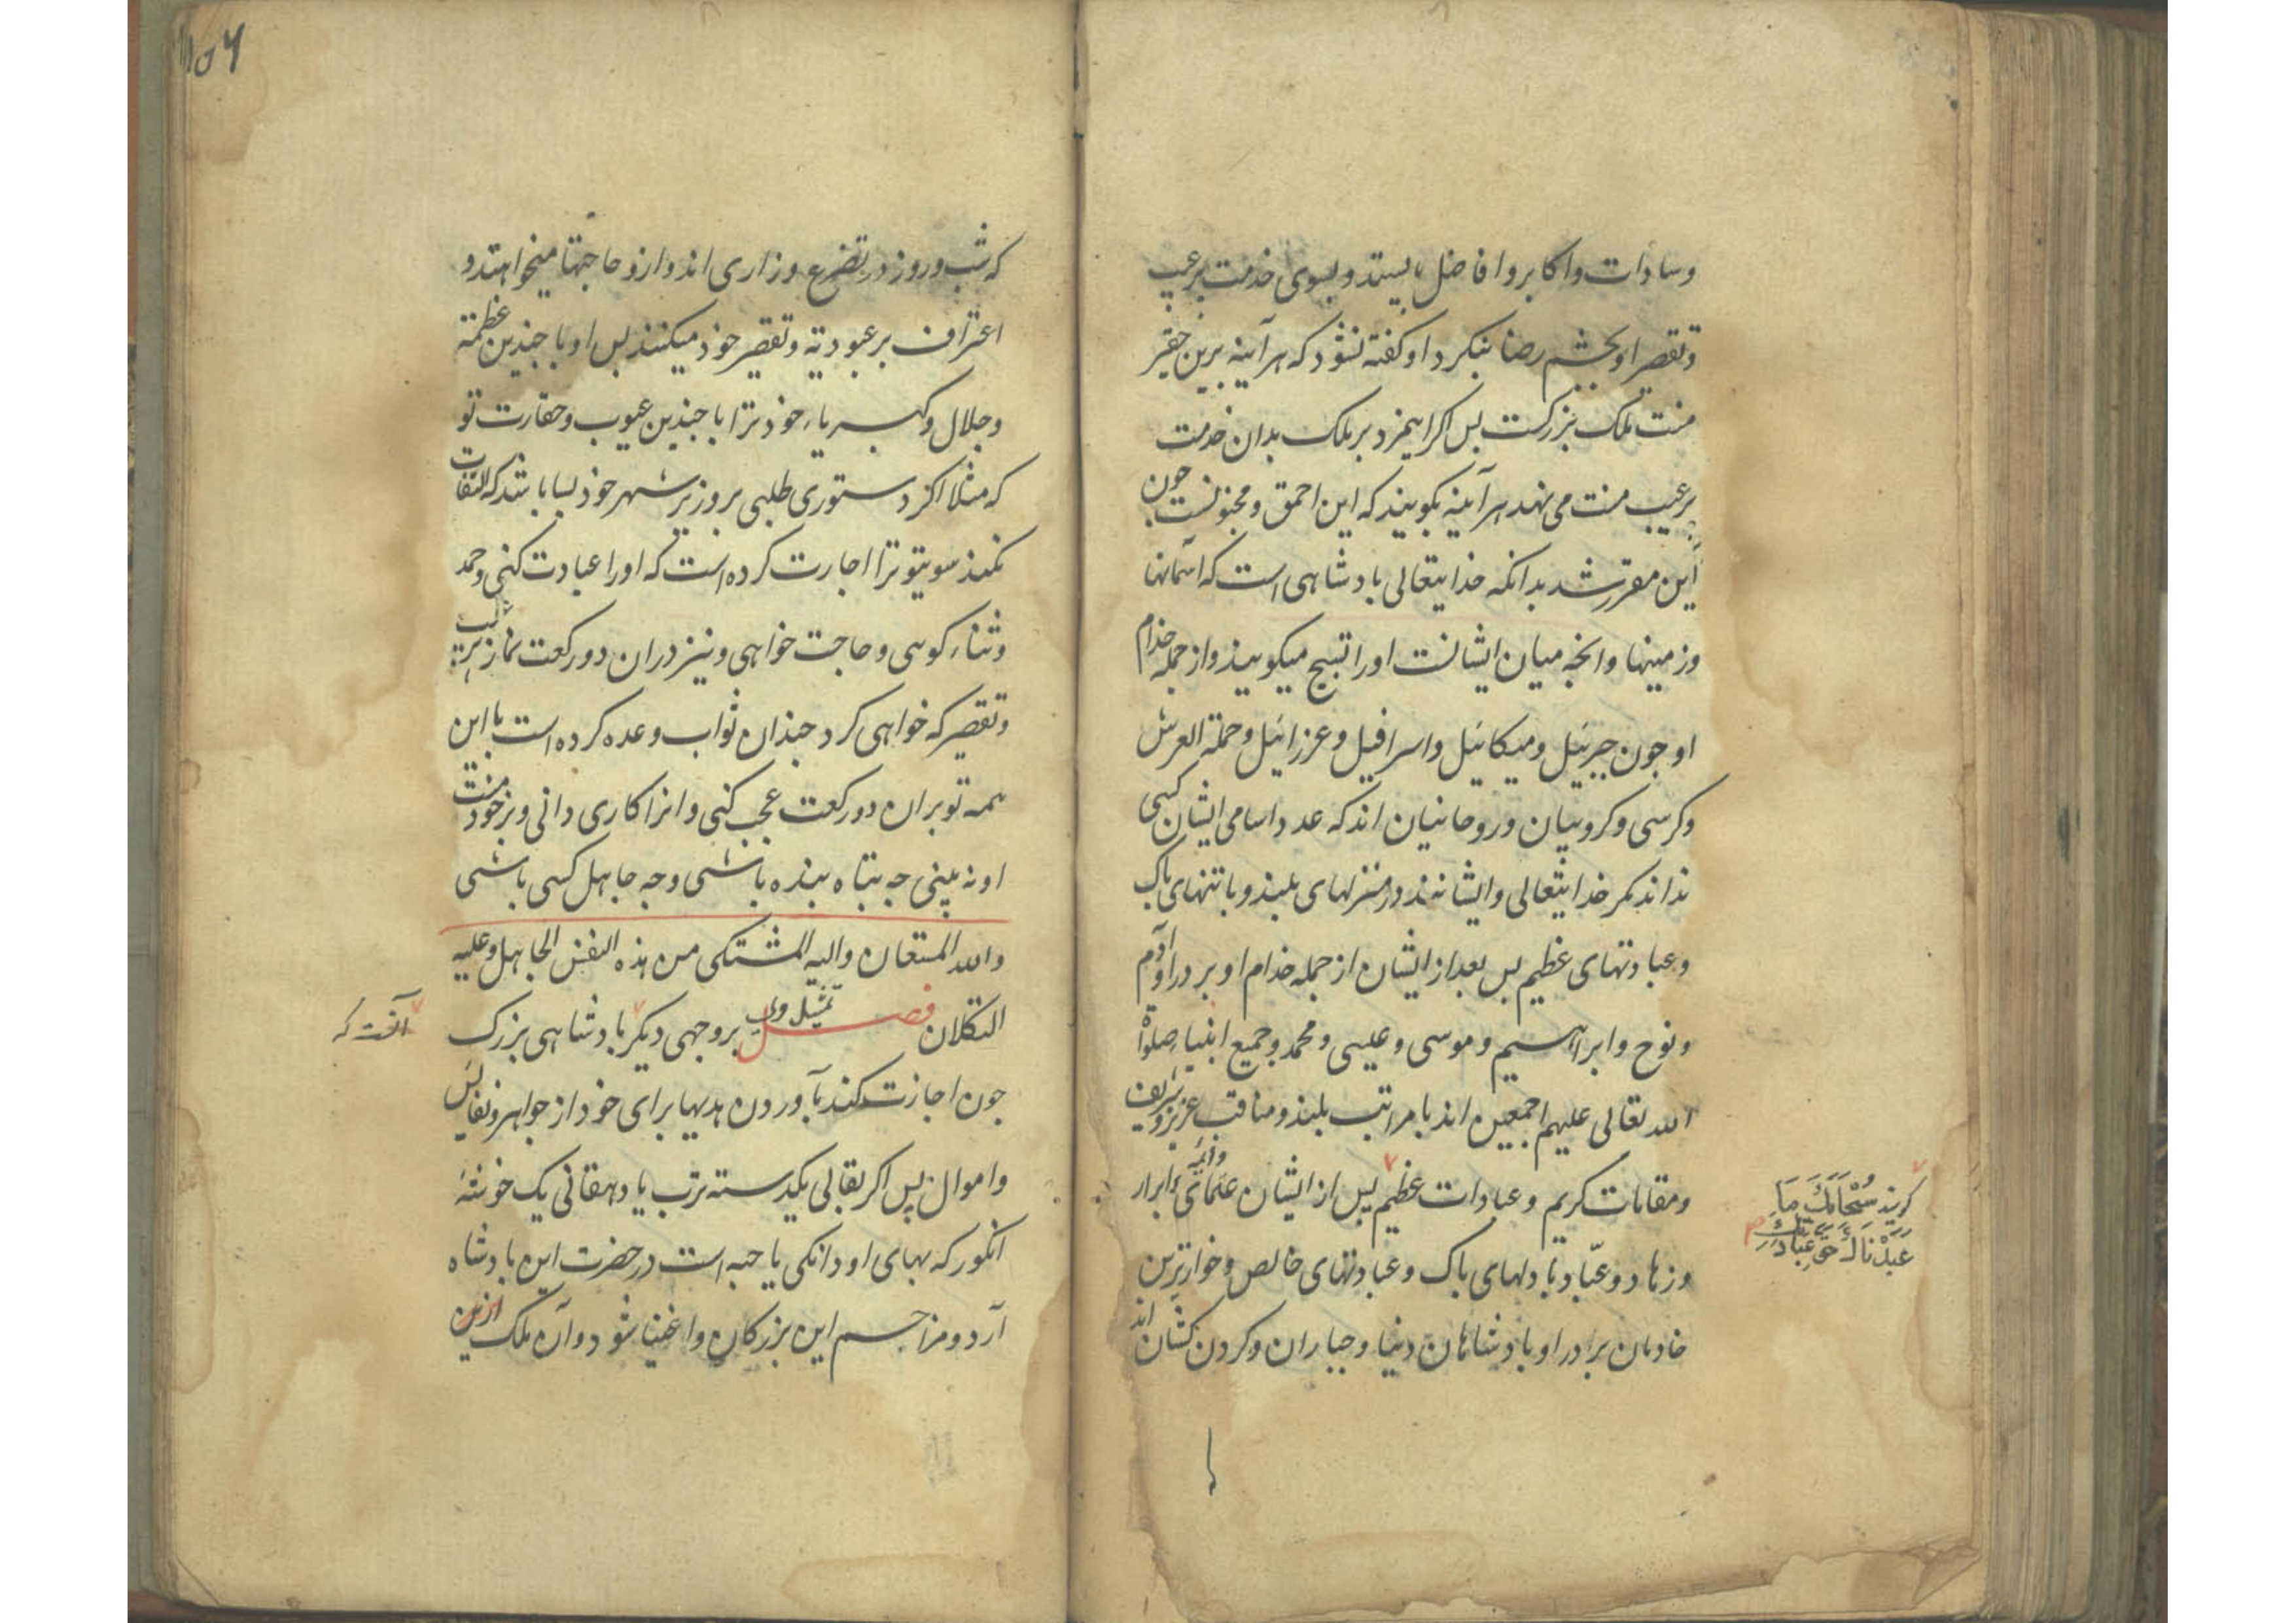 وسادات واکابر وافاضل بایستد وبسوی خدمت برعیب
وتقصیر او بچشم رضا بنکرد او کفته نشود که هر آینه برین حقیر
منت ملک بزرکست بس اکر این مزد بر ملک بدان خدمت
برعیب منت می نهد هر آینه بکویند که این احمق ومجنونست چون
این مقرر شد بدانکه خدایتعالی بادشاهی است که آسمانها
وزمینها وانچه میان ایشانست اورا تسبیح میکویند واز جمله خدام
او جون جبرئیل ومیکائیل واسرافیل وعزرائیل وحملة العرش
وکرسی وکروبیان وروحانیان اند که عدد واسامی ایشان کسی
نداند مکر خدایتعالی وایشانند در منزلهای بلند وباتنهای باک
وعبادتهای عظیم بس بعد از ایشان از جمله خدام او بر در او آدم
ونوح وابراهیم وموسی وعیسی ومحمد وجمیع انبیا صلوة
الله تعالی علیهم اجمعین اند با مراتب بلند ومناقب عزیز وشریف
ومقامات کریم وعبادات عظیم بس از ایشان علمای وائمه ابرار
وزهاد وعبّاد با دلهای باک وعبادتهای خالص وخوارترین
خادمان بر در او بادشاهان دنیا وجباران وکردن کشان اند
کویند سُبْحَانَكَ مَا
عَبَدْنَاكَ حَقَّ عِبَادَتِكَ
۱۵۶
که شب وروز در تضرع وزاری اند وازو حاجتها میخواهند و
اعتراف بر عبودیة وتقصیر خود میکنند بس او با چندین عظمة
وجلال وکبریاء خود ترا با چندین عیوب وحقارت تو
که مثلا اکر دستوری طلبی بر وزیر شهر خود بسا باشد که التفات
نکند سوی تو ترا اجازت کرده است که اورا عبادت کنی وحمد
وثناء کوئی وحاجت خواهی ونیز دران دو رکعت نماز برعیب
وتقصیر که خواهی کرد چندان ثواب وعده کرده است با این
همه تو بران دو رکعت عجب کنی وانرا کاری دانی وبر خود منت
او نه بینی چه تباه بنده باشی وچه جاهل کسی باشی
والله المستعان والیه المشتکی من هذه النفس الجاهل وعلیه
التکلان فصل تمثیل وی بر وجهی دیکر بادشاهی بزرک
آنست که
جون اجازت کند بآوردن هدیها برای خود از جواهر ونفایس
واموال پس اکر بقالی یکدسته ترب یا دهقانی یک خوشه
انکور که بهای او دانکی یا حبه است در حضرت این بادشاه
آرد ومزاحم این بزرکان واغنیا شود وآن ملک ازین